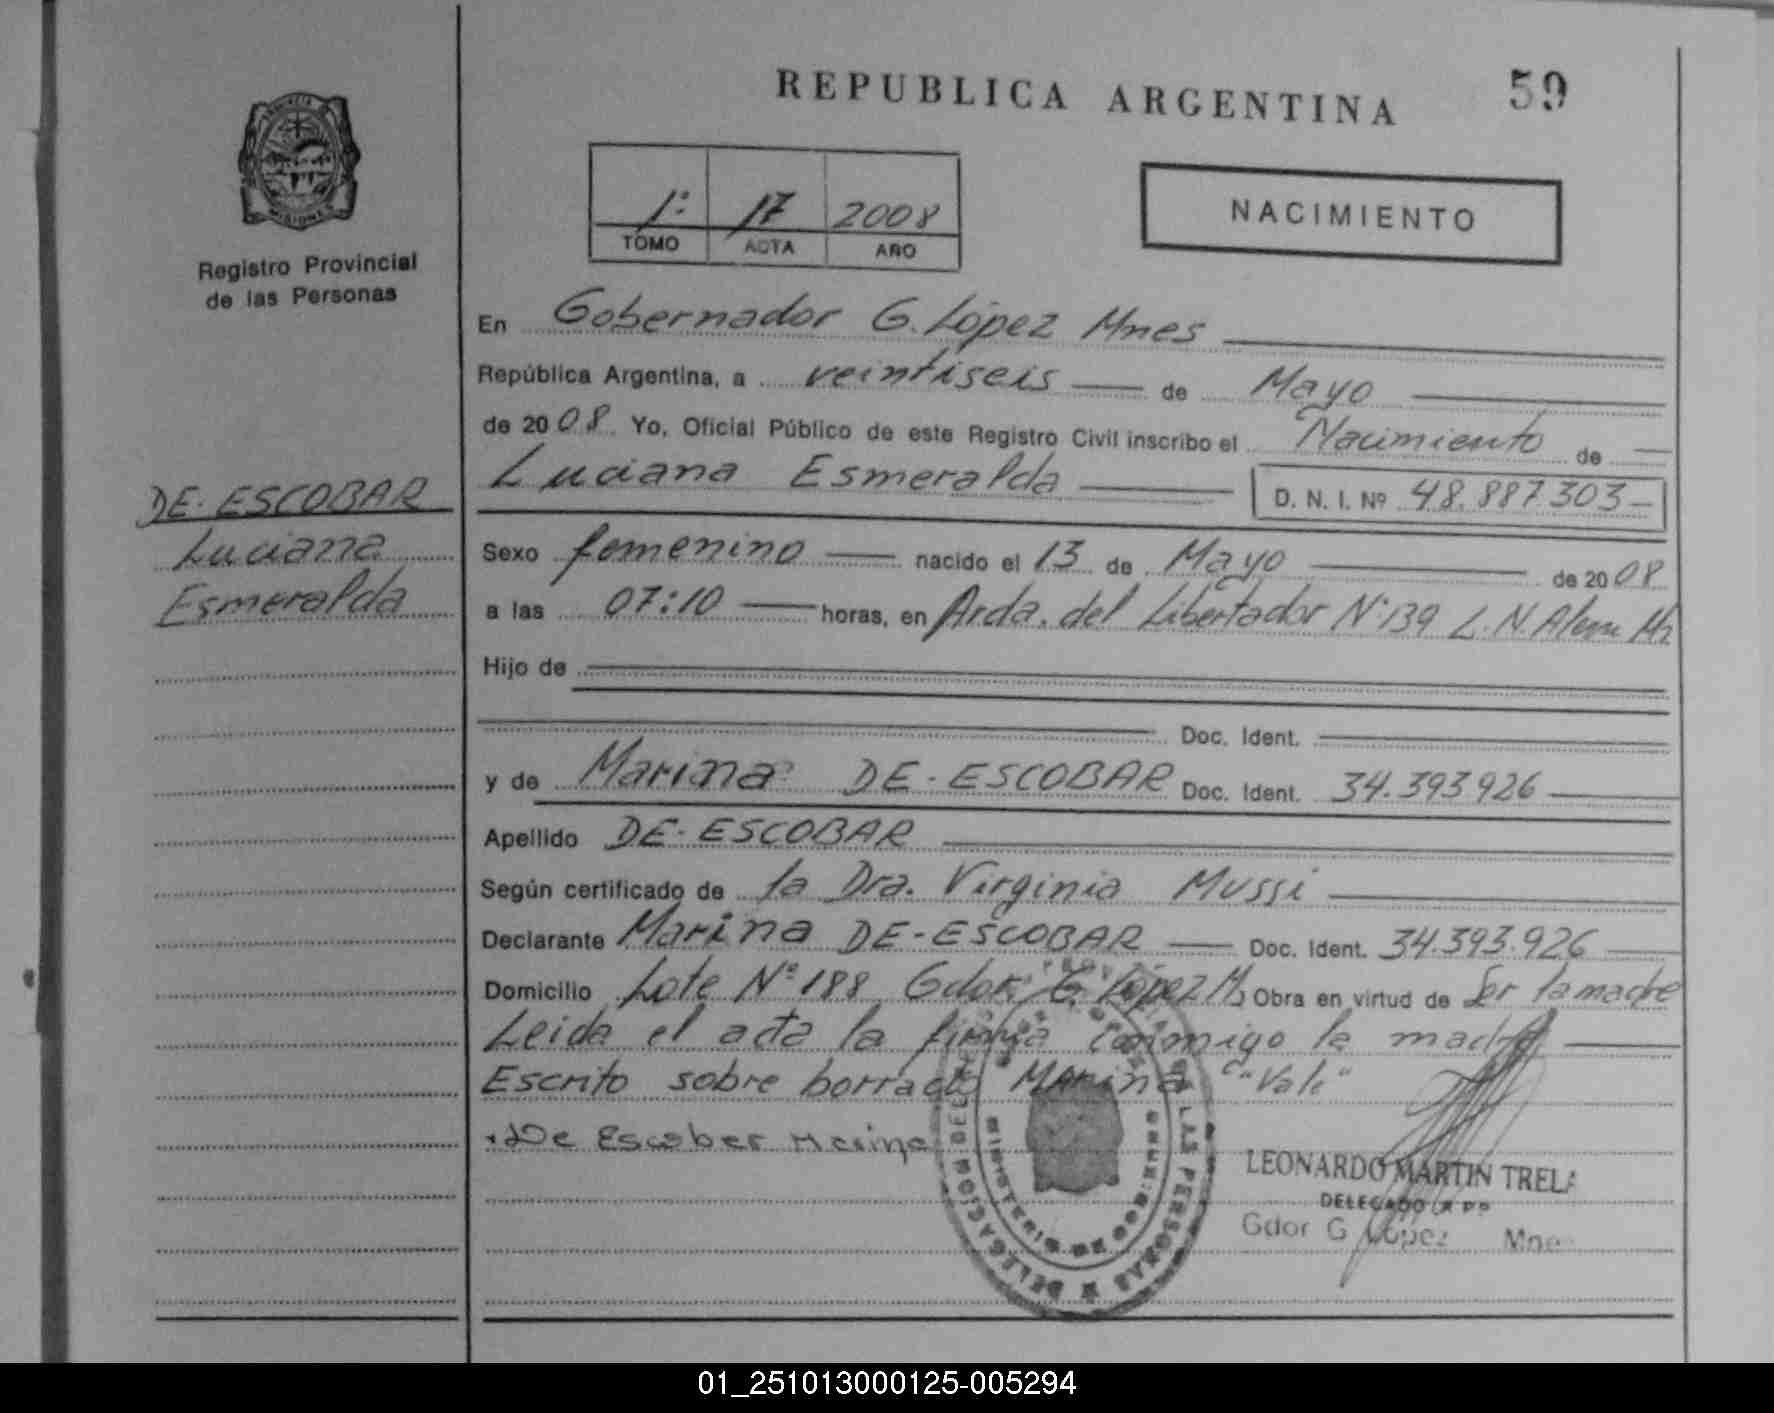 REPUBLICA ARGENTINA
59
PROVINCIA DE
MISIONES
Registro Provincial
de las Personas
1º 17 2008
TOMO ACTA AÑO
NACIMIENTO
DE-ESCOBAR
Luciana
Esmeralda
En Gobernador G. López Mnes
República Argentina, a veintiseis de Mayo
de 2008 Yo, Oficial Público de este Registro Civil inscribo el Nacimiento de
Luciana Esmeralda D. N. I. Nº 48.887.303
Sexo femenino nacido el 13 de Mayo de 2008
a las 07:10 horas, en Avda. del Libertador Nº 139 L. N. Alem
Hijo de
Doc. Ident.
y de Marina DE-ESCOBAR Doc. Ident. 34.393.926
Apellido DE-ESCOBAR
Según certificado de la Dra. Virginia Mussi
Declarante Marina DE-ESCOBAR Doc. Ident. 34.393.926
Domicilio Lote Nº 188 Gdor. G. López M. Obra en virtud de Ser la madre
Leida el acta la firma conmigo la madre
Escrito sobre borrado Marina "Vale"
De Escobar Marina
LAS PERSONAS DELEGACION
MINISTERIO DE GOB
LEONARDO MARTIN TRELA
DELEGADO R P P
Gdor G López Mnes
01_251013000125-005294